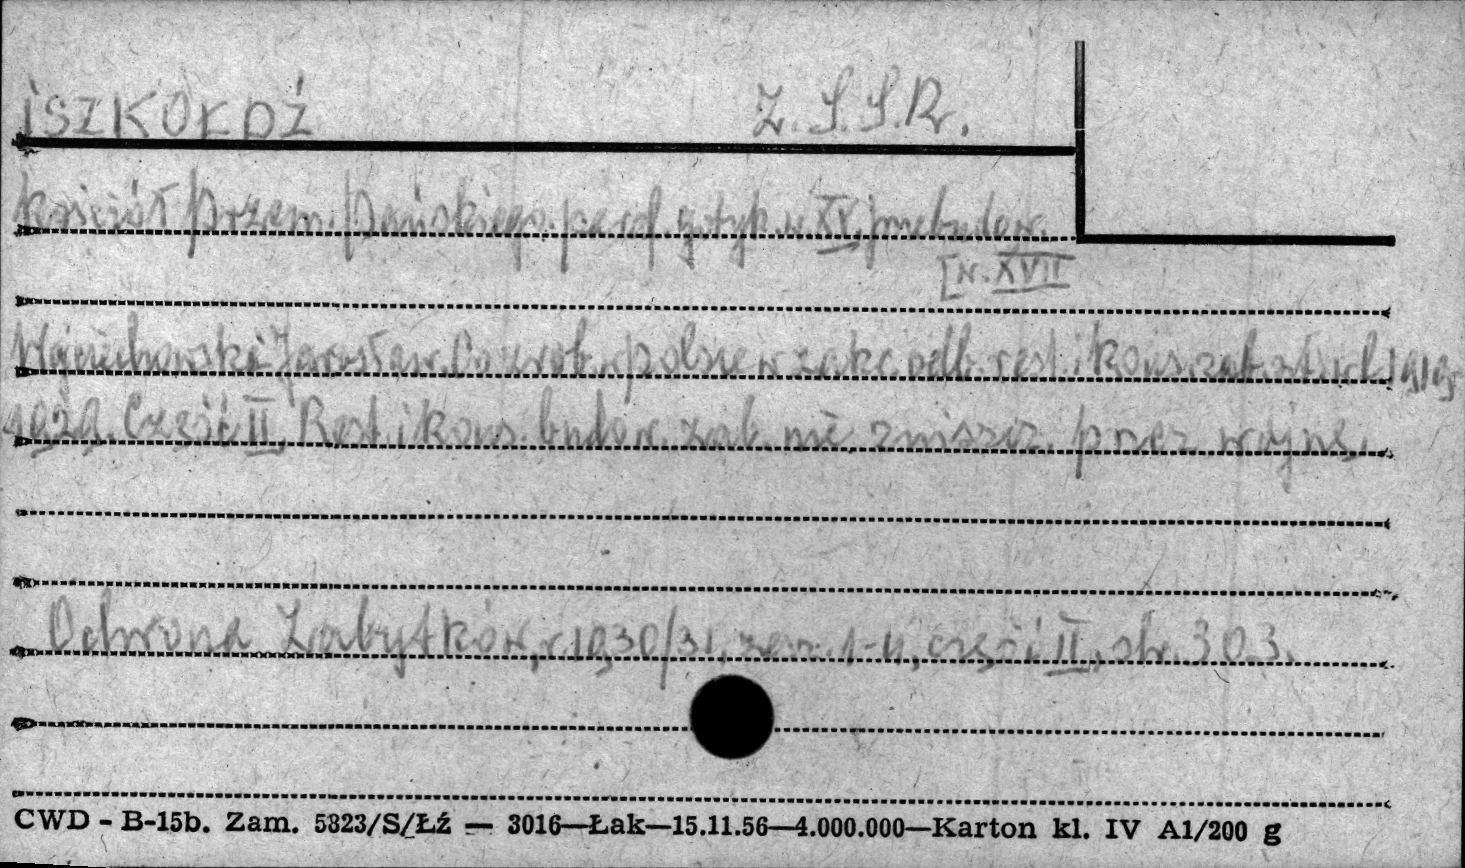 ISZKOŁDŹ Z.S.S.R.
kościół Przem. Pańskiego. paraf. gotyk. w. XV, przebudow.
[w. XVII
Wojciechowski Jarosław. Co zrob. w polsce w zakr. odb. rest. i kons. zab. szt. od 1919,
1929. Część II, Rest. i kons. budow. zab. nie zniszcz. przez wojnę.
Ochrona Zabytków, r. 1930/31, zesz. 1-4, część II, str. 303.
CWD - B-15b. Zam. 5823/S/Łź — 3016—Łak—15.11.56—4.000.000—Karton kl. IV A1/200 g